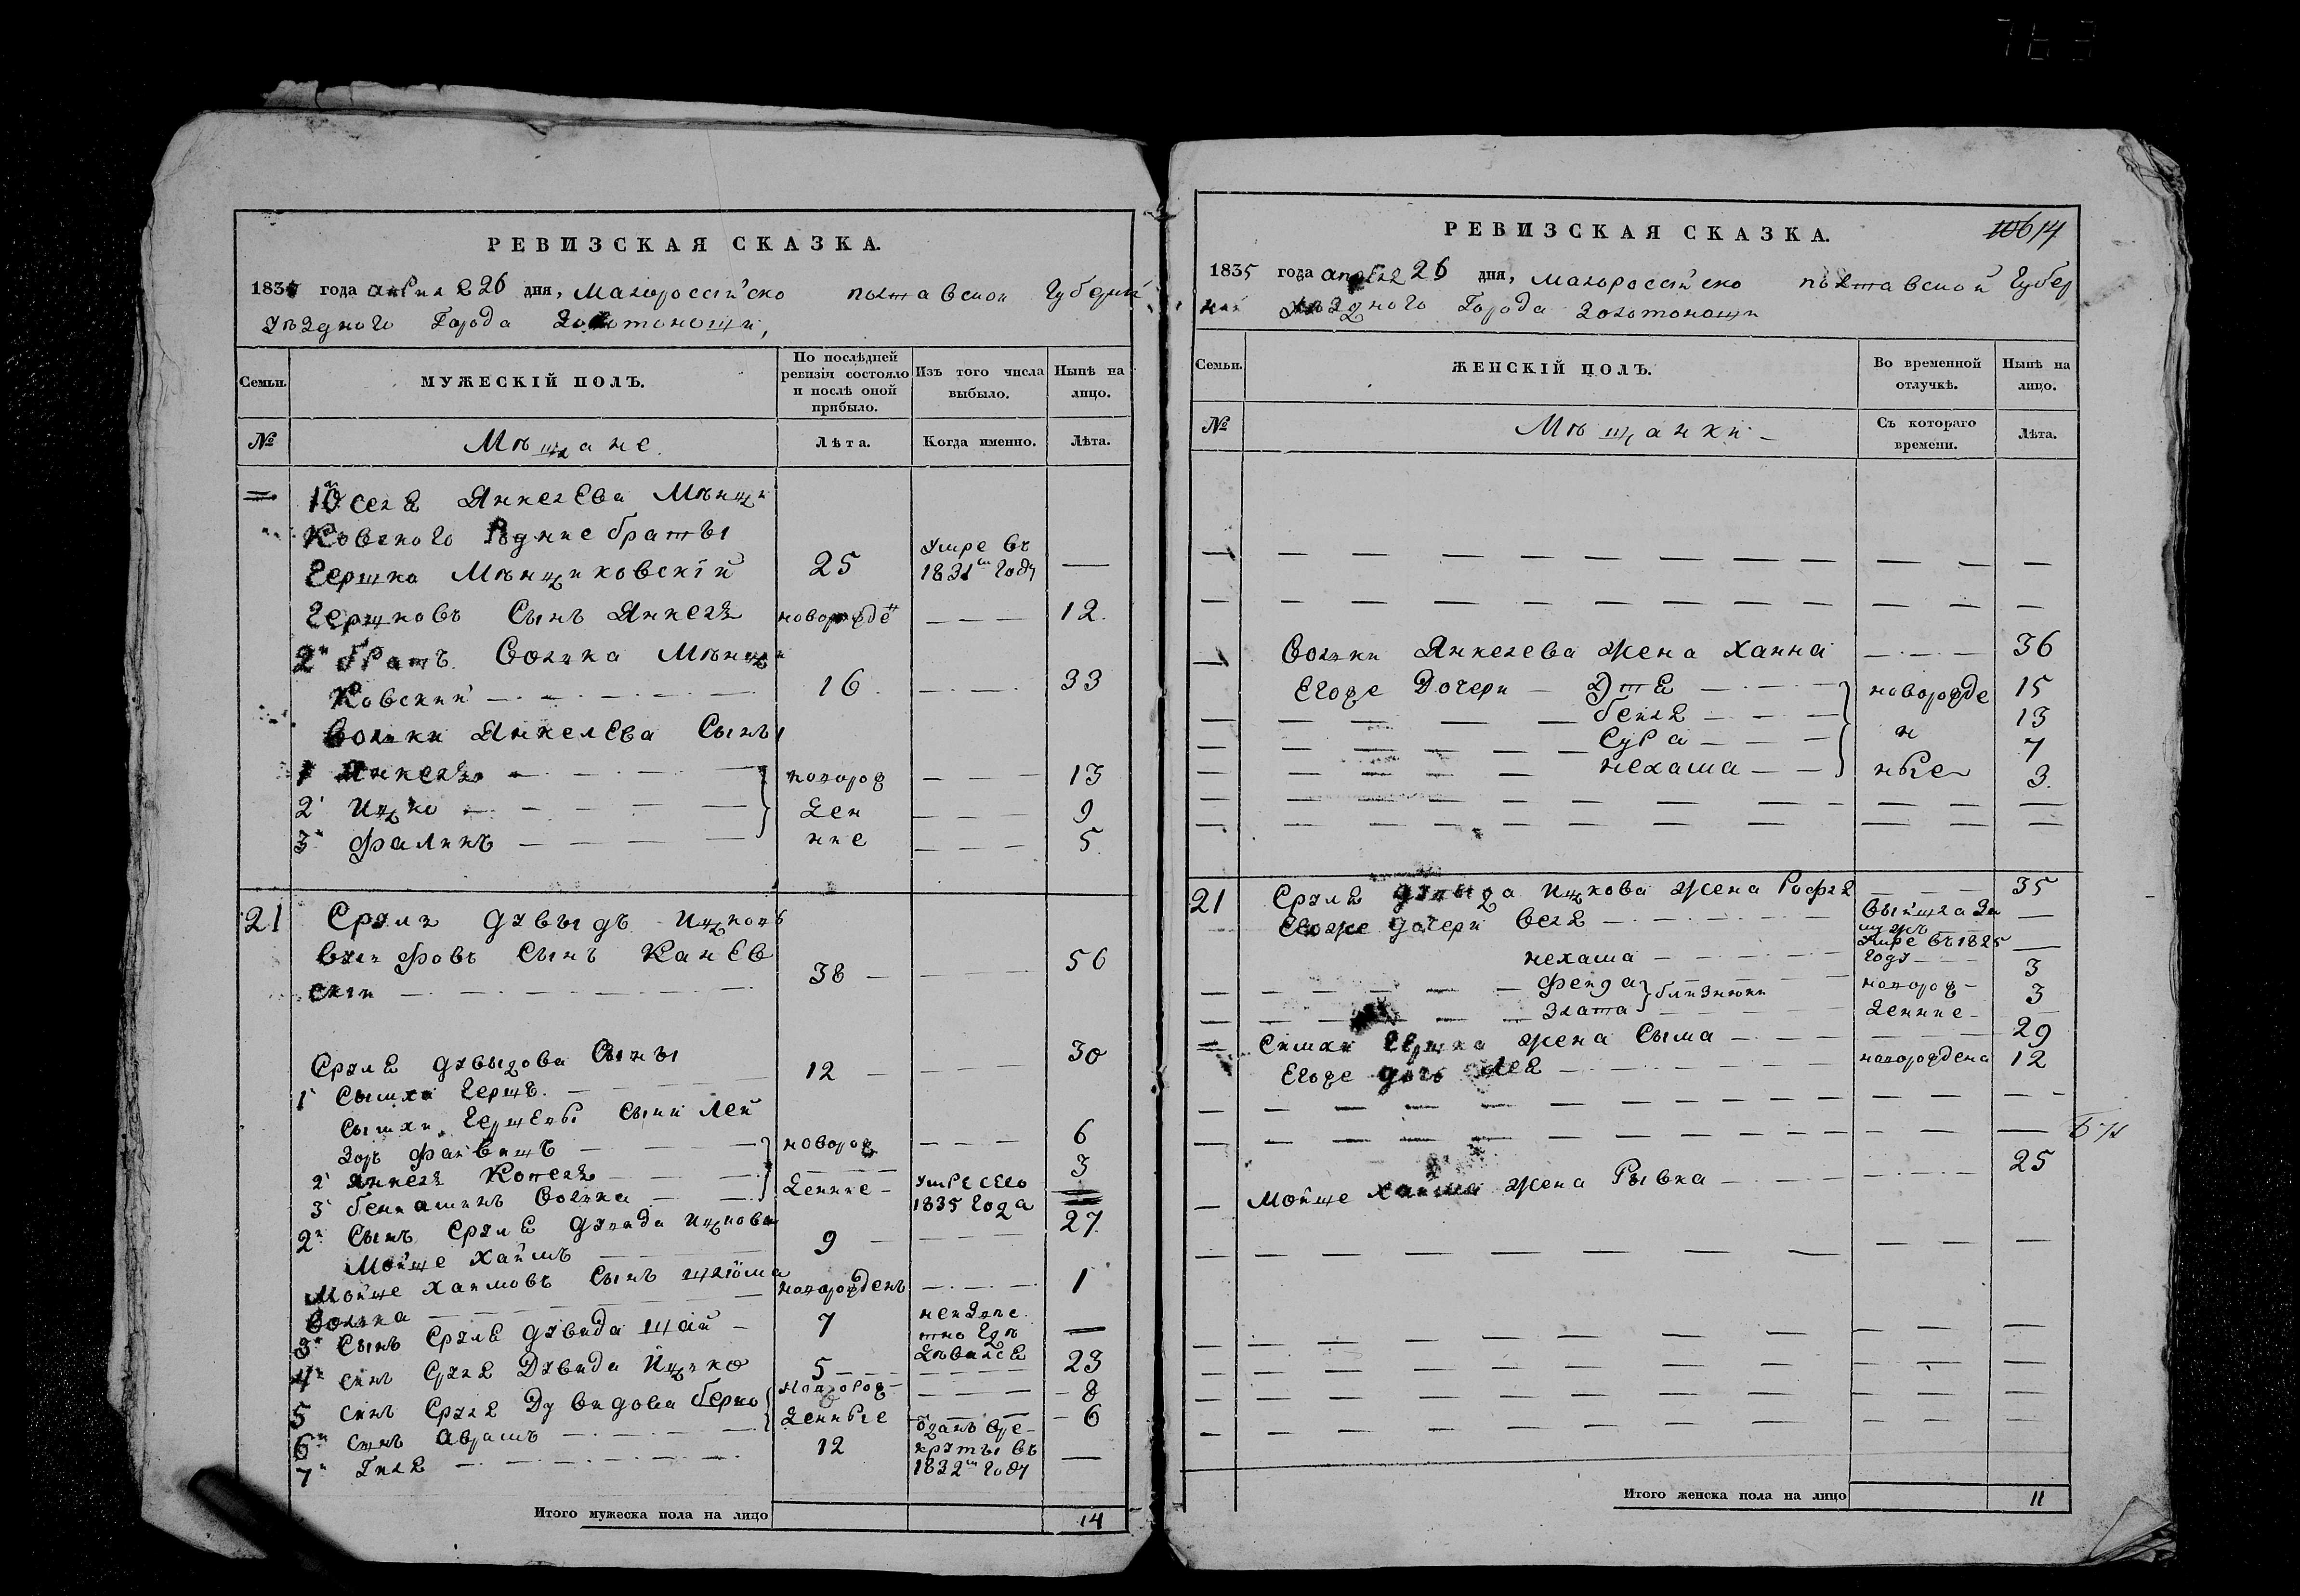 РЕВИЗСКАЯ СКАЗКА.
1835 года апреля 26 дня, Малороссійско полтавской Губерніи
Уѣздного Города Золотоноши,
Семьи.
МУЖЕСКІЙ ПОЛЪ.
По послѣдней ревизіи состояло и послѣ оной прибыло.
Изъ того числа выбыло.
Нынѣ на лицо.
№
Мѣщане.
Лѣта.
Когда именно.
Лѣта.
Іоселя Янкелева
Ковского братъı
Гершко 25 Умре въ 1831 Году —
Гершковъ Сынъ Янкель 12
2й братъ Волька
Ковский 16 33
Вольки Янкелева Сынъı
1 Янкель новорож 13
2 Ицко ден 9
3 Фаликъ ние 5
21 Сруль Дувыдъ Ицковъ
Вульфовъ Сынъ Канев
скій 38 56
Сруля Дувыдова Сынъı
1 Сымха Гершъ 12 30
Сымхи Сыни Лей
зоръ Файвишъ новорож 6
2 Янкель Копель 3
3 бениаминъ Волька денние Умре сего 1835 Года
2й Сынъ Сруля Дувида Ицкова
Мойше Хаимъ 9 27
Мойше Хаимовъ Сынъ Шліома
Волька новорожденъ 1
3й Сынъ Сруля Дувида Шай 7 —
4й синъ Сруля Дувида Ицко 5 23
5 синъ Сруля Дувидова берко новорож 8
6й синъ Аврамъ денные 6
7й Гиля 12 Оданъ вре круты въ 1832 Году —
Итого мужеска пола на лицо 14
РЕВИЗСКАЯ СКАЗКА.
14
1835 года апреля 26 дня, Малороссійско полтавской Губер
ніи уѣздного Города Золотоноши
Семьи.
ЖЕНСКІЙ ПОЛЪ.
Во временной отлучкѣ.
Нынѣ на лицо.
№
Мѣщанки
Съ котораго времени.
Лѣта.
Вольки Янкелева жена Ханна 36
Егоже Дочери Этя новорожде 15
бейля 13
Сура н 7
нехаша ные 3
21 Сруля Дувыда Ицкова жена Рофля 35
Егоже дочери Веля Выйшла За мужъ —
нехаша Умре въ 1825 Году —
Фейда новорож 3
Злата близнюки денние 3
Симхи Гершка жена Сыма 29
Егоже дочь Лея новорождена 12
Мойше Хаима жена Рывка 25
Итого женска пола на лицо 11